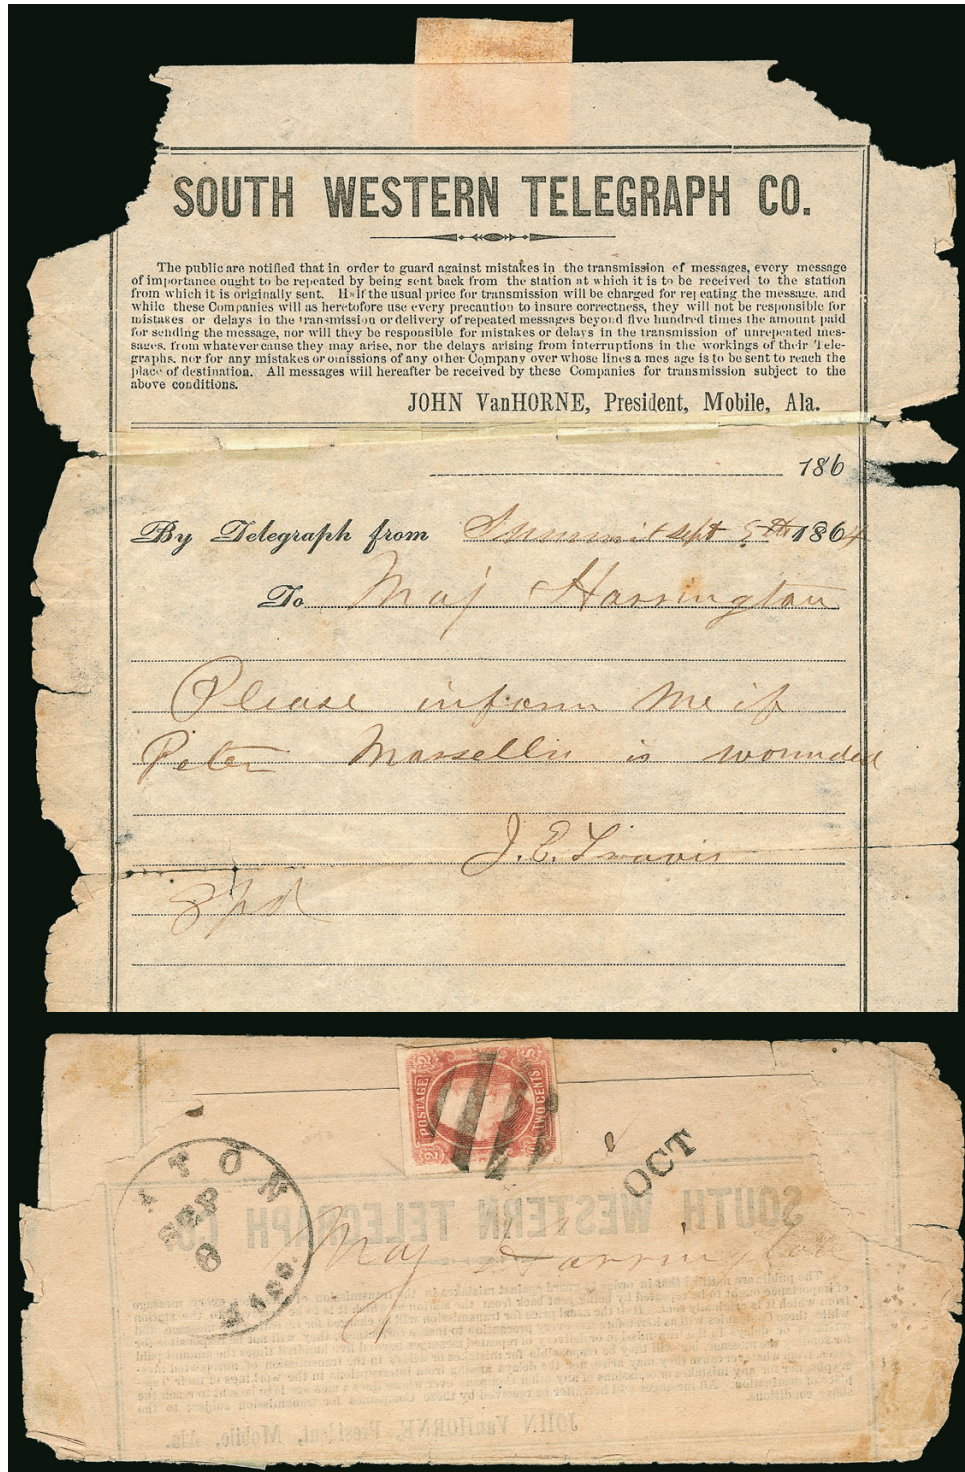 SOUTH WESTERN TELEGRAPH CO.
The public are notified that in order to guard against mistakes in the transmission of messages, every message
of importance ought to be repeated by being sent back from the station at which it is to be received to the station
from which it is originally sent. Half the usual price for transmission will be charged for repeating the message, and
while these Companies will as heretofore use every precaution to insure correctness, they will not be responsible for
mistakes or delays in the transmission or delivery of repeated messages beyond five hundred times the amount paid
for sending the message, nor will they be responsible for mistakes or delays in the transmission of unrepeated mes-
sages, from whatever cause they may arise, nor the delays arising from interruptions in the workings of their Tele-
graphs, nor for any mistakes or omissions of any other Company over whose lines a mes age is to be sent to reach the
place of destination. All messages will hereafter be received by these Companies for transmission subject to the
above conditions.
JOHN VanHORNE, President, Mobile, Ala.
186
By Telegraph from Summit Sept 5th 1864
To Maj Harrington
Please inform me if
Peter Marsellis is wounded
J. E. Travis
8 pd
POSTAGE
TWO CENTS
2
OCT
ATON
SEP
6
Maj Harrington
SOUTH WESTERN TELEGRAPH CO.
JOHN VanHORNE, President, Mobile, Ala.